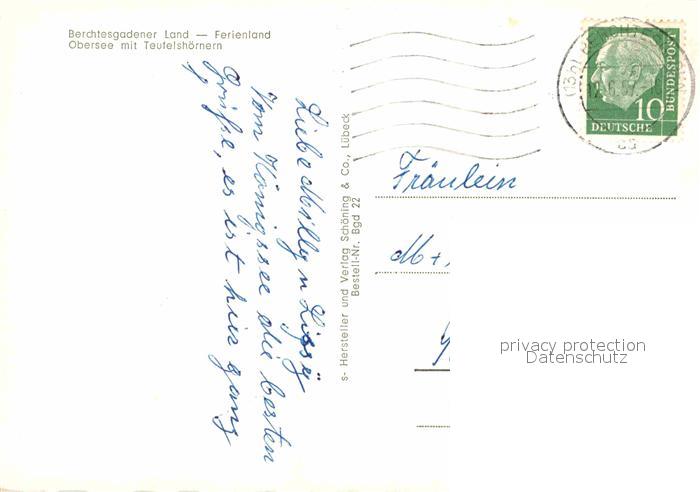 Berchtesgadener Land — Ferienland
Obersee mit Teufelshörnern
Liebe Milly u Lissy
Vom Königssee die besten
Grüße, es ist hier ganz
s- Hersteller und Verlag Schöning & Co., Lübeck
Bestell-Nr. Bgd 22
DEUTSCHE
BUNDESPOST
10
(13b) BERCHTESGADEN
Fräulein
M+.
privacy protection
Datenschutz